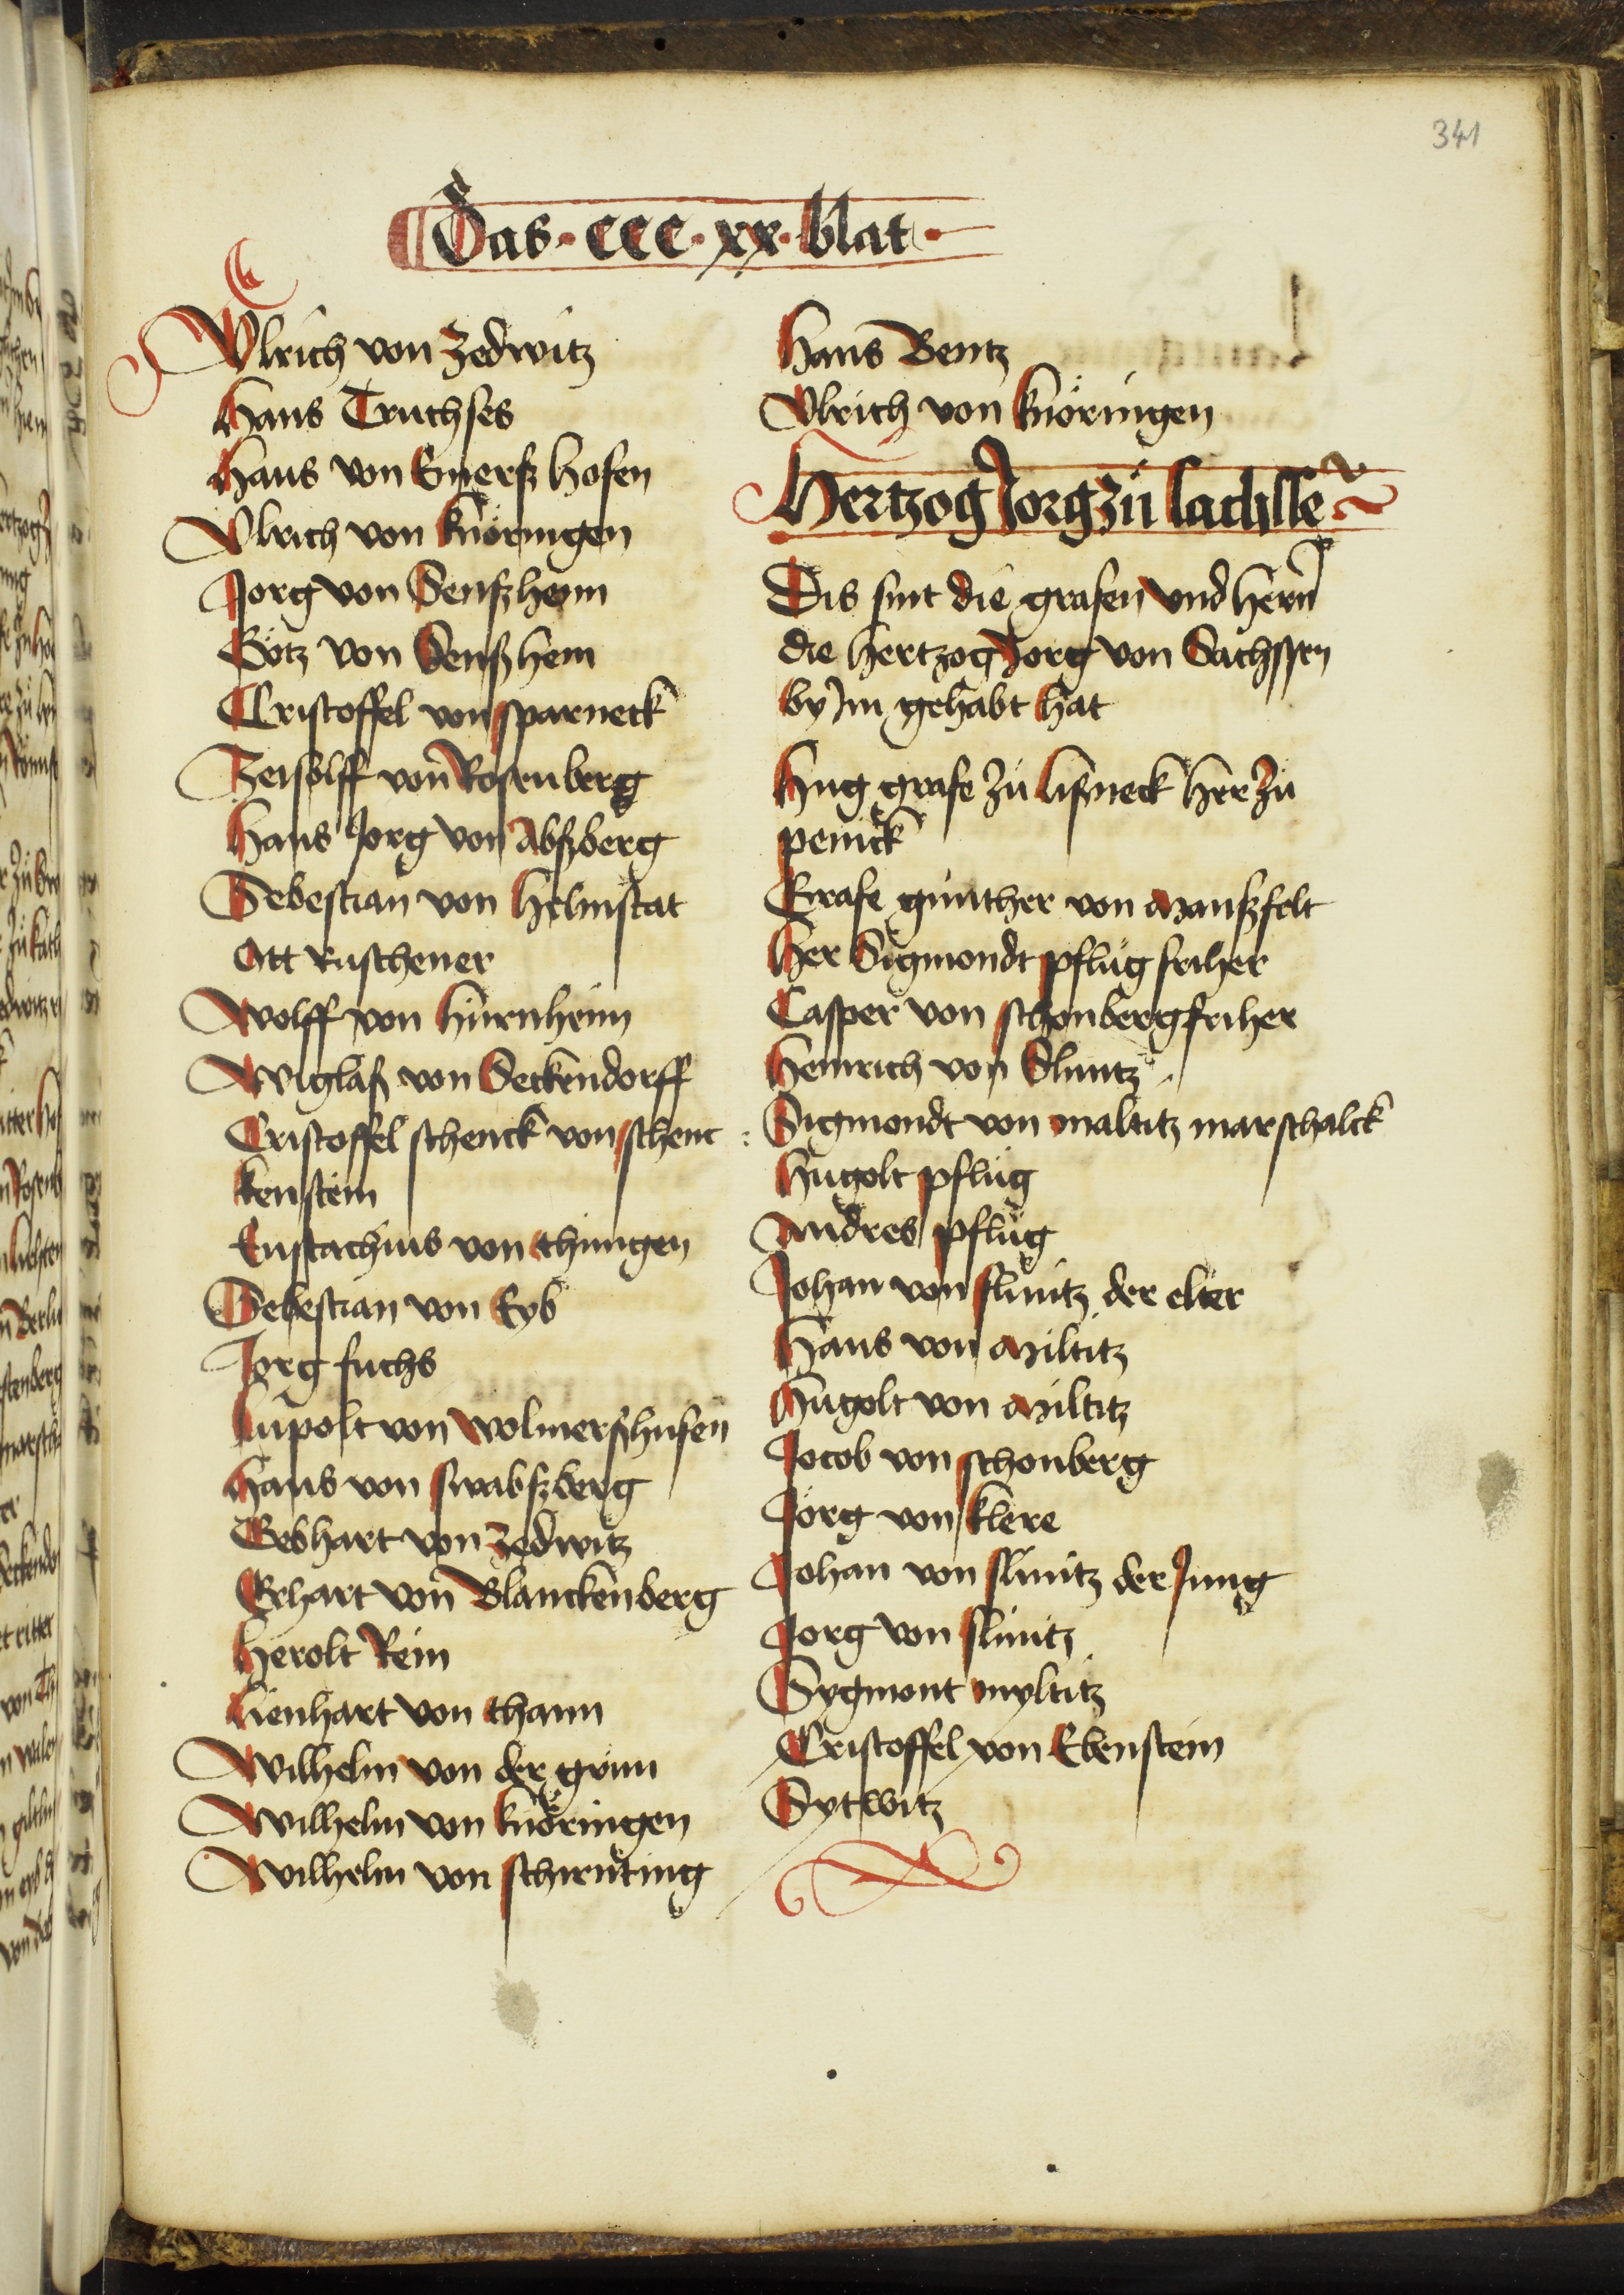 341
Das · CCC · xx · blat ·
Vlrich von Zedwitz
Hans Truchses
Hans von Emerß hofen
Vlrich von knöringen
Jorg von Senßheim
Götz von Senßhem
Cristoffel von sparneck
Zeisolff von Rosenberg
Hans Jorg von Abßberg
Sebestian von Helmstat
Ott Ruschener
Wolff von hürnheim
Wiglaß von Seckendorff
Cristoffel schenck von schenc
kenstein
Eustachius von thüngen
Sebestian von Eyb
Jorg fuchs
lupolt von wolmerßhusen
Hans von swabßberg
Gebhart von Zedwitz
Erhart von Blanckenberg
Herolt Rein
Lienhart von thann
Wilhelm von der grün
Wilhelm von knöringen
Wilhelm von schirnting
Hans Bentz
Vlrich von knöringen
Hertzog Jorg zü sachsse
Dis sint die grafen vnd hern
die hertzog Jorg von Sachssen
by Jm gehabt hat
Hug grafe zü lißneck her zü
penick
Grafe günther von Manßfelt
Her Sigmondt pflüg friher
Casper von schonberg friher
Heinrich von Slinitz
Sigmondt von maltitz marschalck
Hugolt pflüg
Andres pflüg
Johan von slinitz der elter
Hans von Miltitz
Hugolt von Miltitz
Jocob von schonberg
Jorg von klere
Johan von slinitz der Jung
Jorg von slinitz
Sygmont myltitz
Cristoffel von Ebenstein
Sytwitz